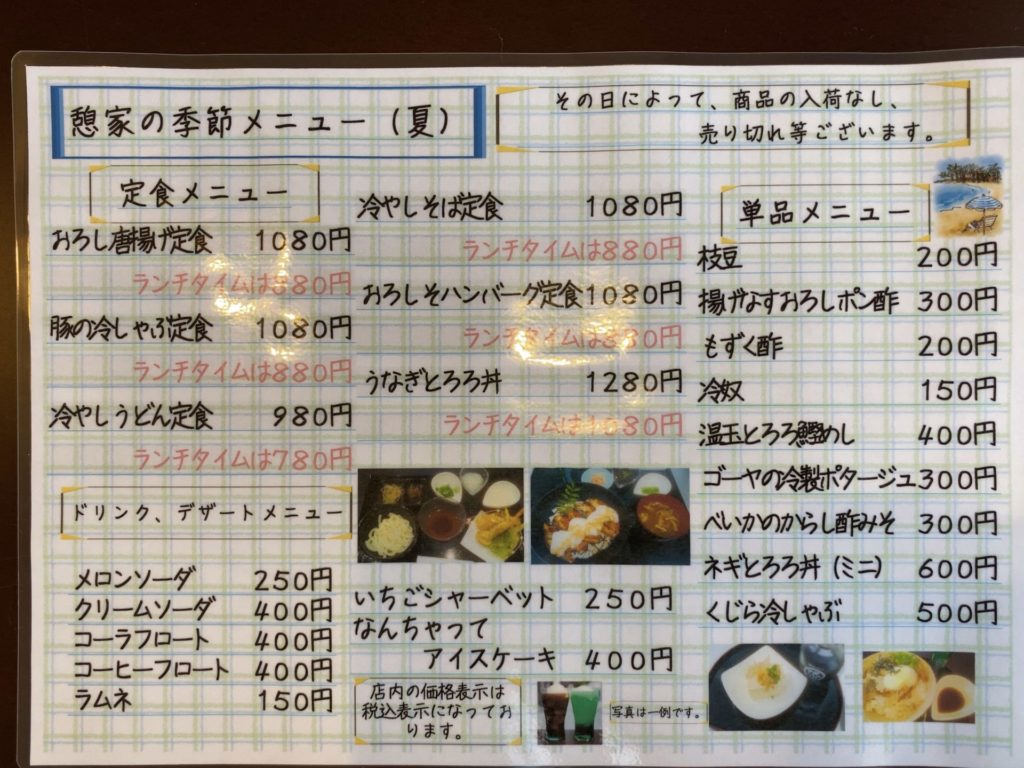 憩家の季節メニュー(夏)
その日によって、商品の入荷なし、
売り切れ等ございます。
定食メニュー
おろし唐揚げ定食 1080円
ランチタイムは880円
豚の冷しゃぶ定食 1080円
ランチタイムは880円
冷やしうどん定食 980円
ランチタイムは780円
冷やしそば定食 1080円
ランチタイムは880円
おろしそハンバーグ定食1080円
ランチタイムは880円
うなぎとろろ丼 1280円
ランチタイムは1080円
単品メニュー
枝豆 200円
揚げなすおろしポン酢 300円
もずく酢 200円
冷奴 150円
温玉とろろ鰹めし 400円
ゴーヤの冷製ポタージュ300円
べいかのからし酢みそ 300円
ネギとろろ丼(ミニ) 600円
くじら冷しゃぶ 500円
ドリンク、デザートメニュー
メロンソーダ 250円
クリームソーダ 400円
コーラフロート 400円
コーヒーフロート 400円
ラムネ 150円
いちごシャーベット 250円
なんちゃって
アイスケーキ 400円
店内の価格表示は
税込表示になってお
ります。
写真は一例です。